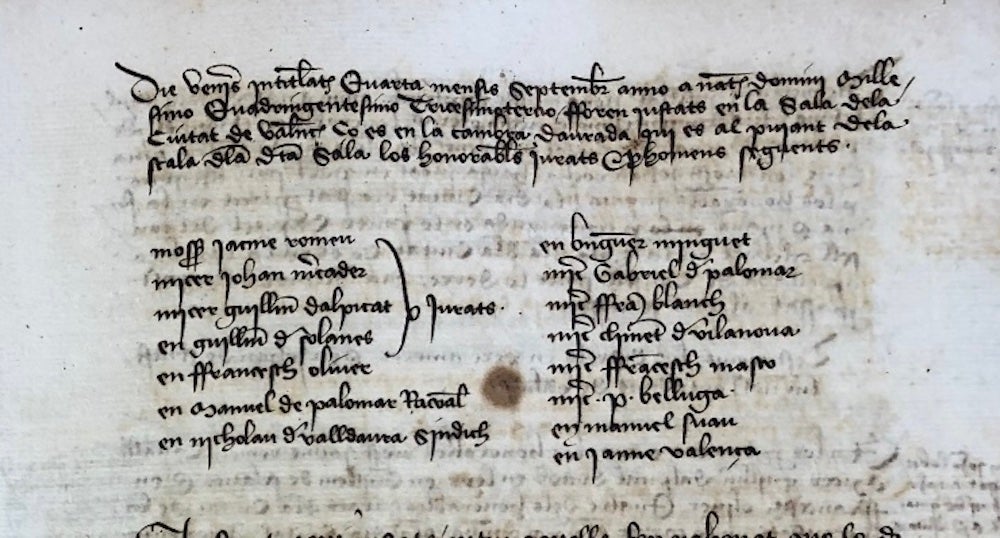 Die veneris intitulata Quarta mensis Septembr anno a natª domini Mille
simo Quadringentesimo Tricesimotercio, fforen iustats en la Sala dela
Ciutat de Valenc ço es en la cambra daurada qui es al puiant dela
scala dla dta Sala los honorabls jurats e phomens seguents.
moss Jacme romeu
micer Johan mcader
micer guillm dalpicat
en guillm d solanes
jurats.
en ffrancesch oliver
en Manuel de palomar Racoal
en nicholau d valldaura Sindich
en bnguer minguet
mic Gabriel d palomar
mic ffra blanch
mic climet d vilanova
mic ffracesch masco
mic. p. belluga
en manuel suau
en Jaume valença